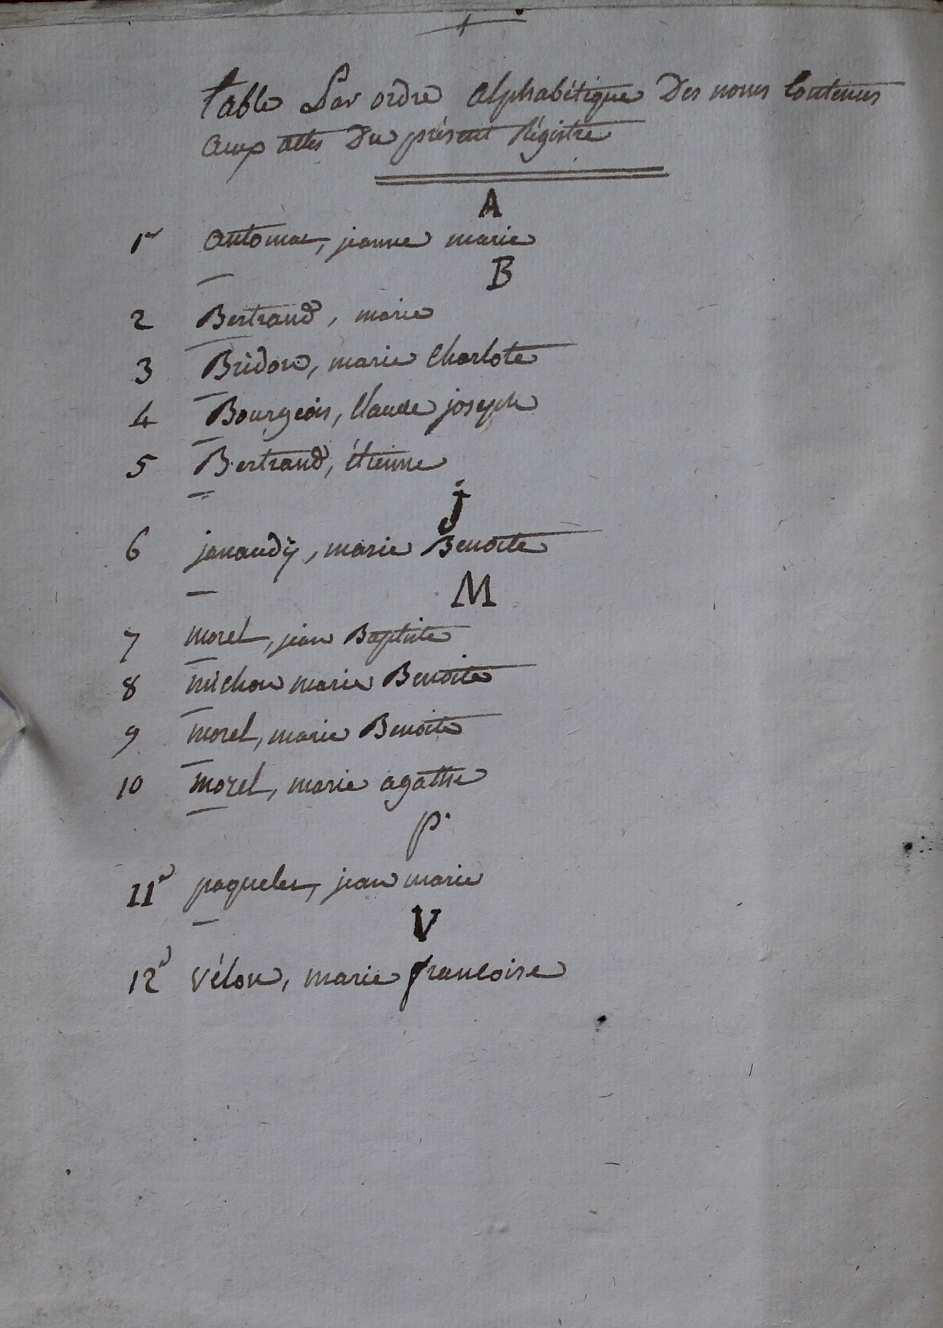 table Par ordre alphabétique Des noms Contenus
aux actes Du présent Régistre
A
1er antomac, jeanne marie
B
2 Bertrand, marie
3 Bridon, marie Charlote
4 Bourgeois, Claude joseph
5 Bertrand, étienne
j
6 janaudÿ, marie Benoite
M
7 morel, jean Baptiste
8 michon marie Benoite
9 morel, marie Benoite
10 morel, marie agathe
p.
11e paquelet, jean marie
V
12e vélon, marie francoise